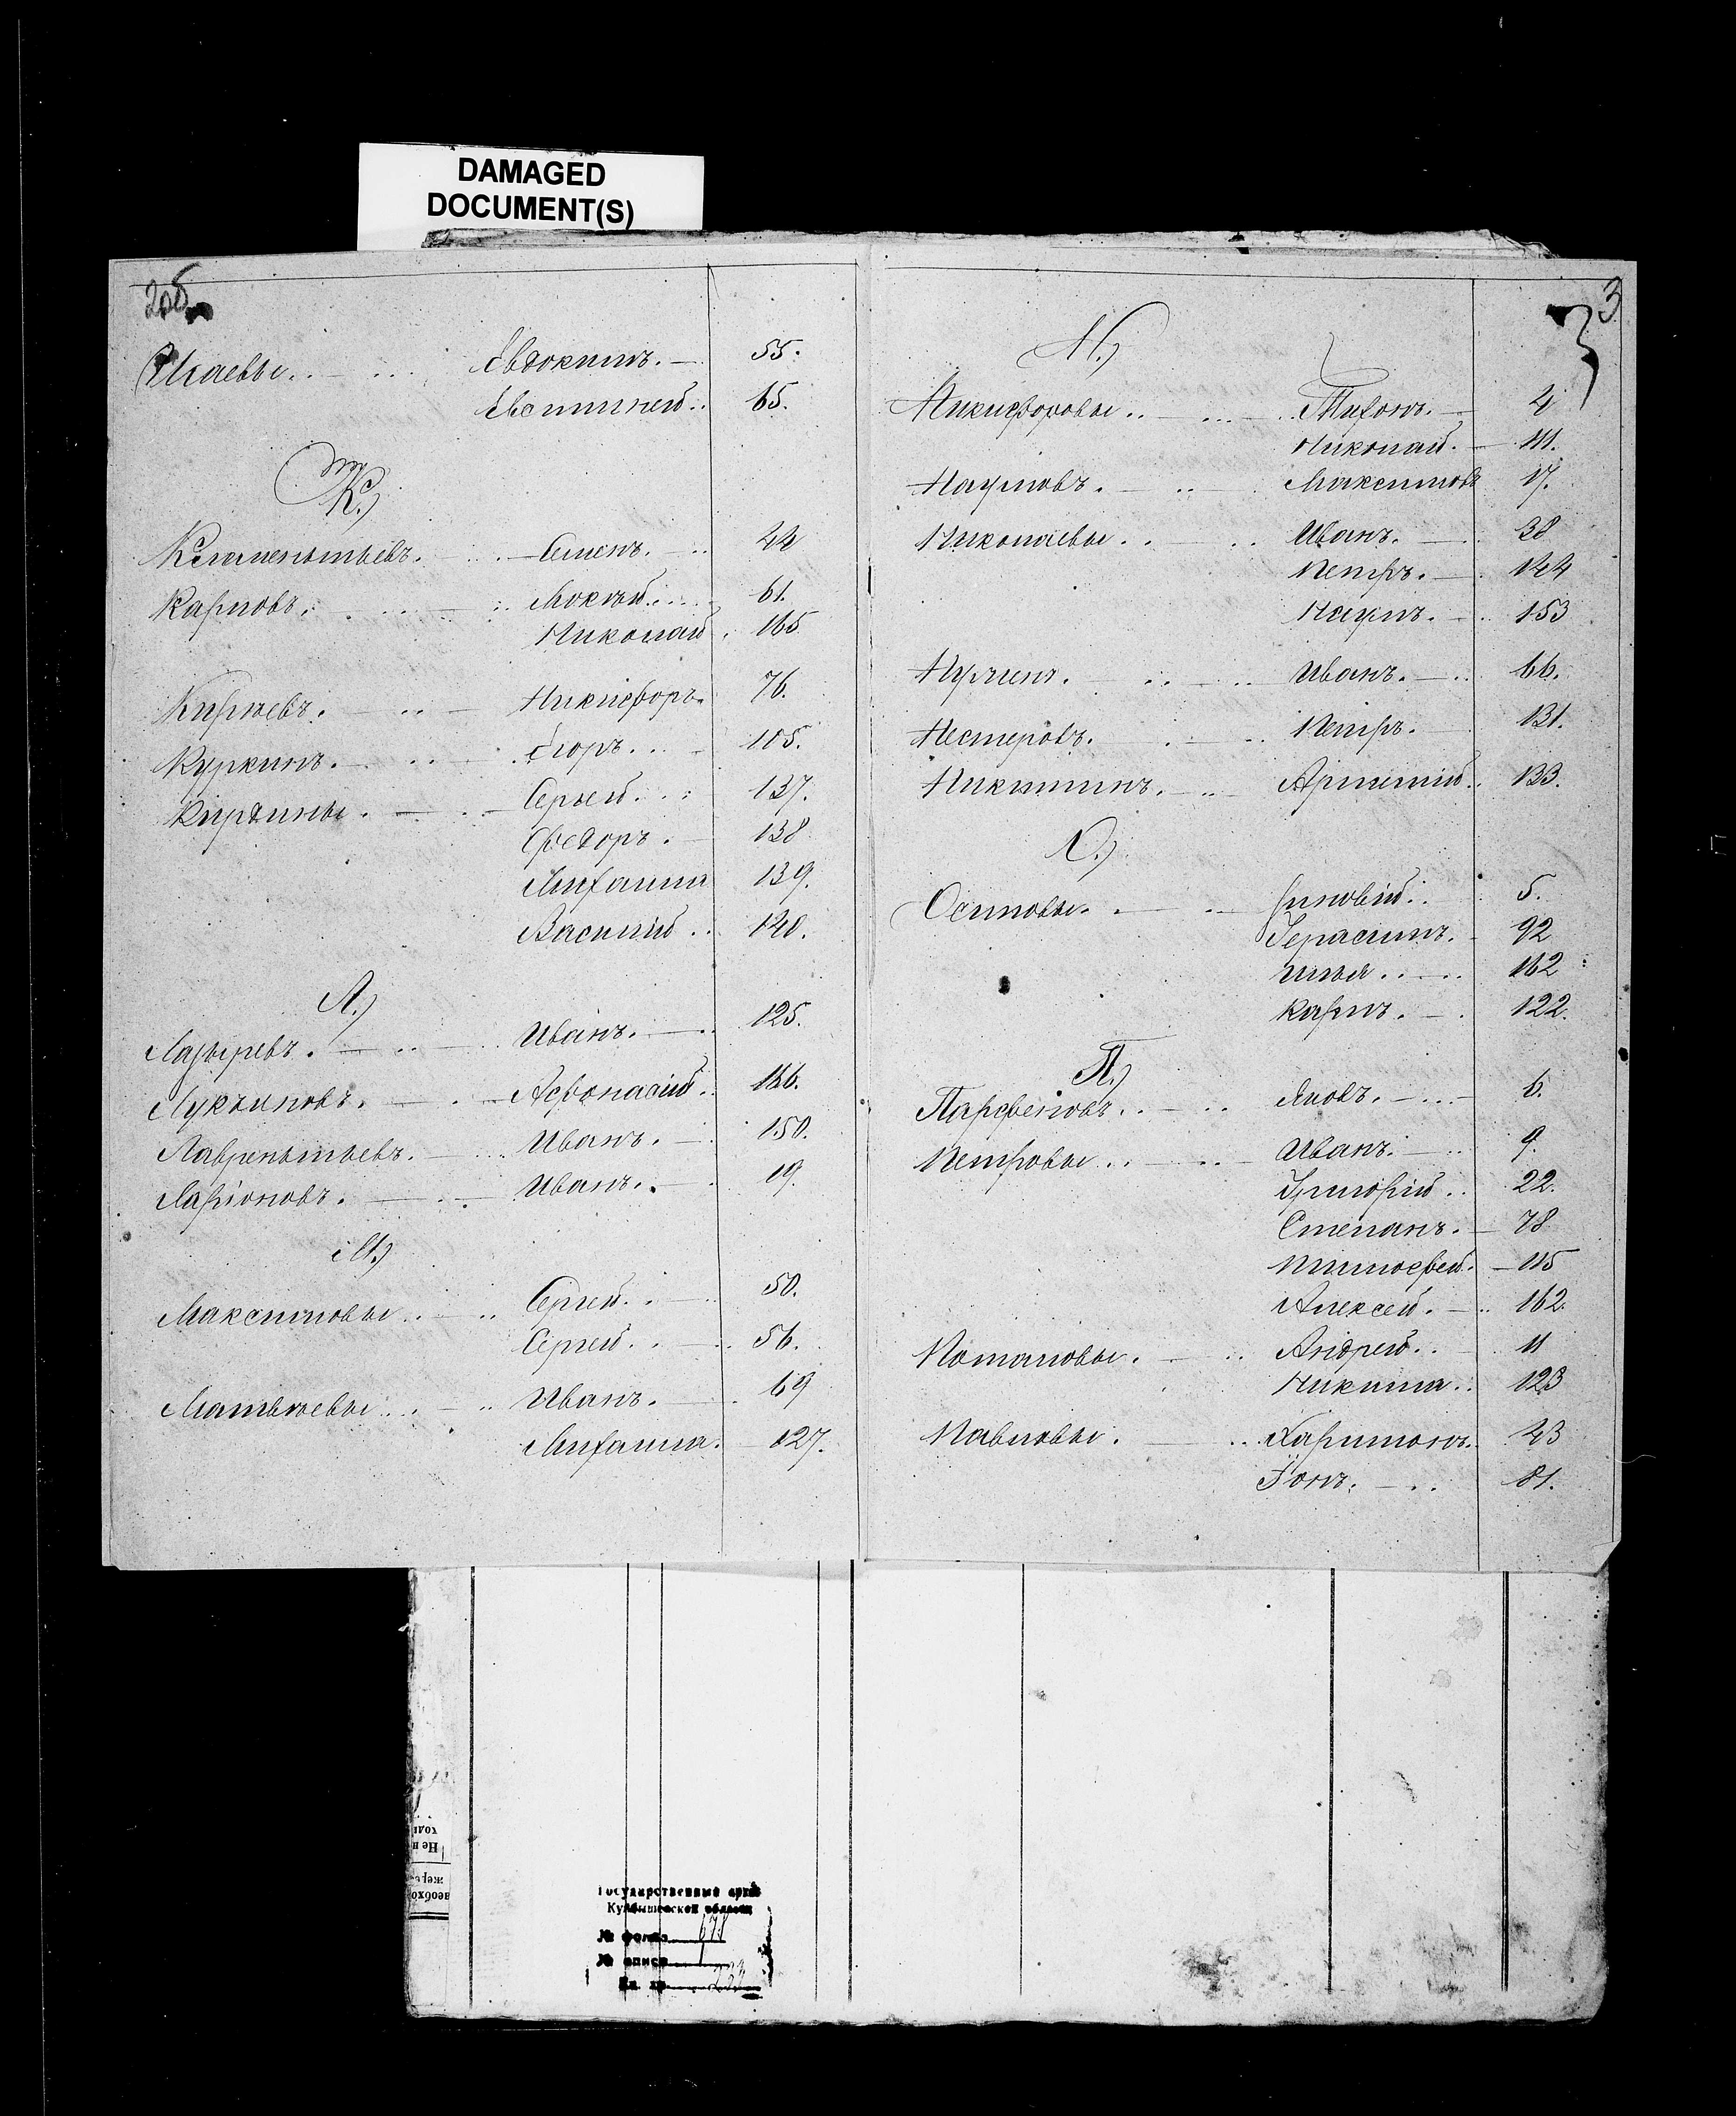 DAMAGED
DOCUMENT(S)
2об
Исаевы Евдокимъ. 55.
Евстигней 65.
К.)
Клементьевъ. Семенъ. 44
Карповъ. Мокѣй 61.
Николай 165
Кирѣевъ. Никифоръ 76.
Куркинъ. Егоръ 105.
Кирдины. Сергѣй 137.
Федоръ. 138
Михаила 139.
Василий 140.
Л.)
Лазыревъ. Иванъ. 125.
Лукъяновъ. Афонасий 146.
Лаврентьевъ. Иванъ. 150.
Ларіоновъ. Иванъ. 19.
М.)
Максимовы Сергей 50.
Сергей 56.
Матвѣевы Иванъ. 69
Михаила. 127.
3
Н.)
Никифоровы Тихонъ. 4
Николай. 41.
Наумовъ. Максимовъ 17.
Николаевы Иванъ. 38
Петръ. 144
Наумъ. 153
Иванъ. 66.
Нестеровъ. Петръ. 131.
Никитинъ. Артемий 133.
О.)
Осиповы. Зиновий 5.
Герасимъ. 92
Илья 162
Карпъ. 122.
П.)
Парфеновъ Яковъ. 6.
Петровы Иванъ. 9.
Григорій 22.
Степанъ. 78
Тимофей. 115
Алексей. 162.
Потаповы. Андрей 11
Никита 123
Павловы. Харитонъ. 43
Іонъ. 81.
Государственный архив
Куйбышевской области
№ фонда 678
№ описи 1
Ед. хр. 232